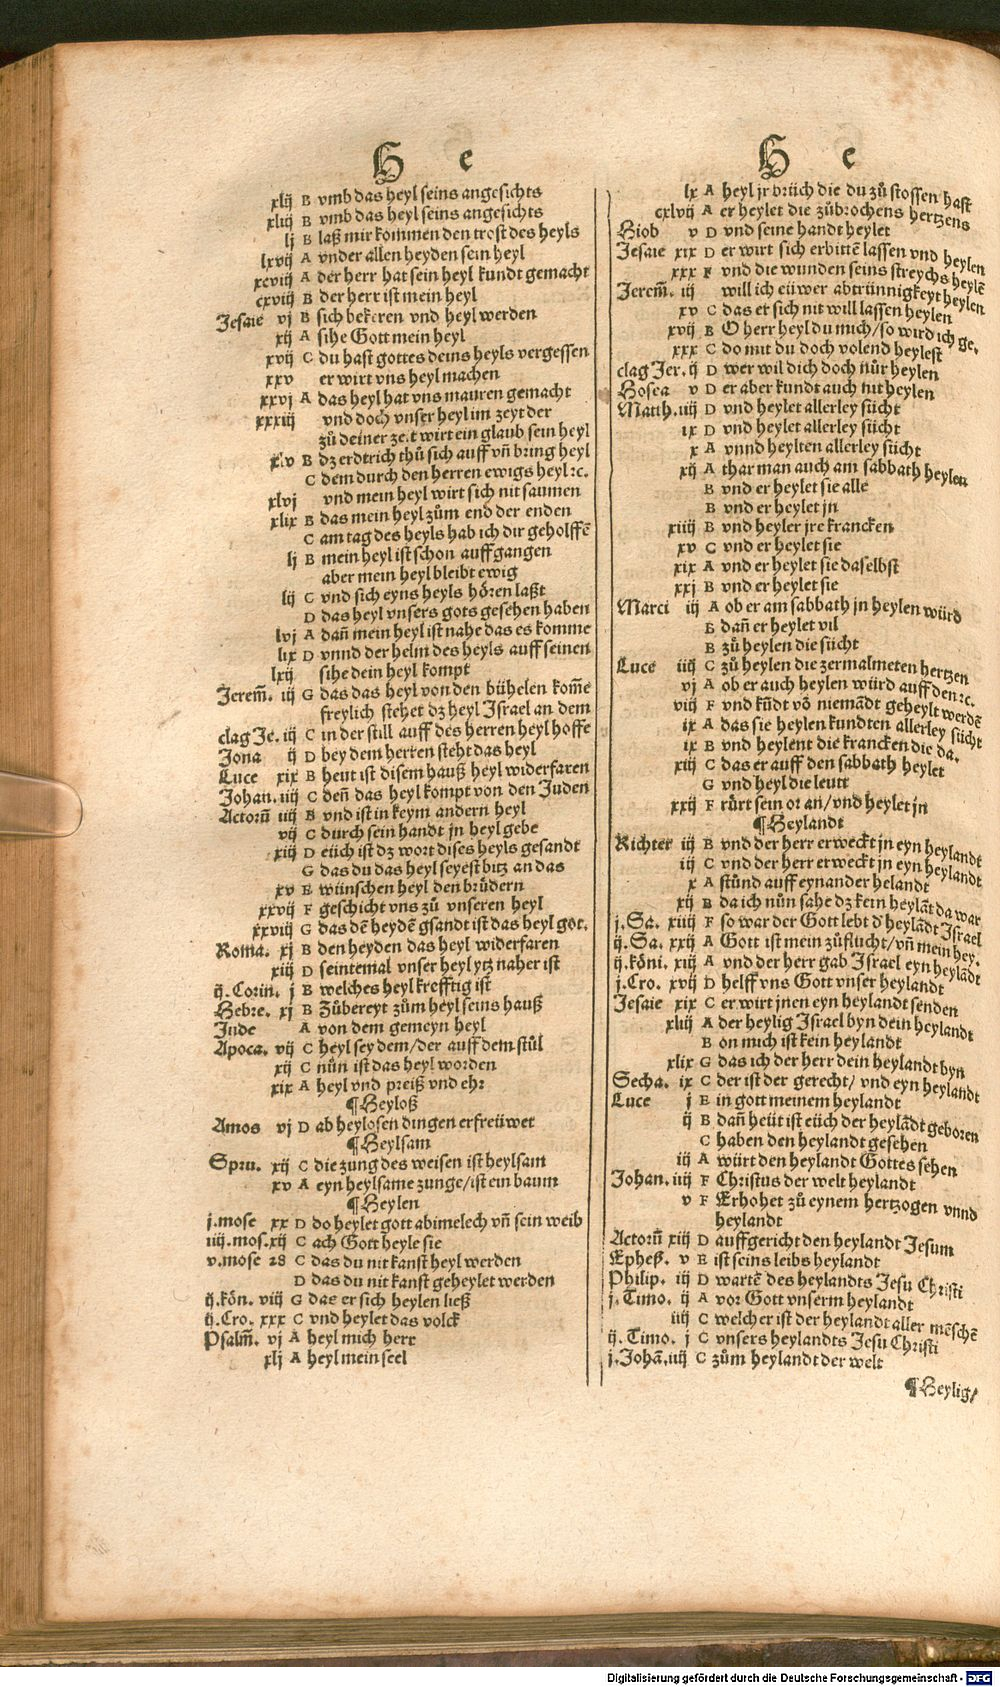 H e
xlij B vmb das heyl seins angesichts
xliij B vmb das heyl seins angesichts
lj B laß mir kommen den trost des heyls
lxvij A vnder allen heyden sein heyl
xcviij A der herr hat sein heyl kundt gemacht
cxviij B der herr ist mein heyl
Jesaie vj B sich bekeren vnd heyl werden
xij A sihe Gott mein heyl
xvij C du hast gottes deins heyls vergessen
xxv er wirt vns heyl machen
xxvj A das heyl hat vns mauren gemacht
xxxiij vnd doch vnser heyl im zeyt der
zů deiner zeit wirt ein glaub sein heyl
xlv B dz erdtrich thů sich auff vñ bring heyl
C dem durch den herren ewigs heyl ꝛc.
xlvj vnd mein heyl wirt sich nit saumen
xlix B das mein heyl zům end der enden
C am tag des heyls hab ich dir geholffē
lj B mein heyl ist schon auffgangen
aber mein heyl bleibt ewig
lij C vnd sich eyns heyls hören laßt
D das heyl vnsers gots gesehen haben
lvj A dañ mein heyl ist nahe das es komme
lix D vnnd der helm des heyls auff seinen
lxij sihe dein heyl kompt
Jerem̃. iij G das das heyl von den bühelen kom̃e
freylich stehet dz heyl Israel an dem
clag Je. iij C in der still auff des herren heyl hoffe
Jona ij D bey dem herren steht das heyl
Luce xix B heut ist disem hauß heyl widerfaren
Johan. iiij C deñ das heyl kompt von den Juden
Actorū iiij B vnd ist in keym andern heyl
vij C durch sein handt jn heyl gebe
xiij D eüch ist dz wort dises heyls gesandt
G das du das heyl seyest bitz an das
xv E wünschen heyl den brüdern
xxvij F geschicht vns zů vnseren heyl
xxviij G das dē heydē gsandt ist das heyl got.
Roma. xj B den heyden das heyl widerfaren
xiij D seintemal vnser heyl ytz naher ist
ij. Corin. j B welches heyl krefftig ist
Hebre. xj B Zůbereyt zům heyl seins hauß
Jude A von dem gemeyn heyl
Apoca. vij C heyl sey dem/der auff dem stůl
xij C nůn ist das heyl worden
xix A heyl vnd preiß vnd ehr
¶Heyloß
Amos vj D ab heylosen dingen erfreüwet
¶Heylsam
Spru. xij C die zung des weisen ist heylsam
xv A eyn heylsame zunge/ist ein baum
¶Heylen
j.mose xx D do heylet gott abimelech vñ sein weib
iiij.mos.xij C ach Gott heyle sie
v.mose 28 C das du nit kanst heyl werden
D das du nit kanst geheylet werden
ij.kön. viij G das er sich heylen ließ
ij.Cro. xxx C vnd heylet das volck
Psalm̃. vj A heyl mich herr
xlj A heyl mein seel
H e
lx A heyl jr brüch die du zů stossen hast
cxlvij A er heylet die zůbrochens hertzens
Hiob v D vnd seine handt heylet
Jesaie xix D er wirt sich erbittē lassen vnd heylen
xxx F vnd die wunden seins streychs heylē
Jerem̃. iij will ich eüwer abtrünnigkeyt heylen
xv C das er sich nit will lassen heylen
xvij B O herr heyl du mich/so wird ich ge.
xxx C do mit du doch volend heylest
clag Jer. ij D wer wil dich doch nůr heylen
Hosea v D er aber kundt auch nit heylen
Matth.iiij D vnd heylet allerley sücht
ix D vnd heylet allerley sücht
x A vnnd heylten allerley sücht
xij A thar man auch am sabbath heylen
B vnd er heylet sie alle
B vnd er heylet jn
xiiij B vnd heyler jre krancken
xv C vnd er heylet sie
xix A vnd er heylet sie daselbst
xxj B vnd er heylet sie
Marci iij A ob er am sabbath jn heylen würd
B dañ er heylet vil
B zů heylen die sücht
Luce iiij C zů heylen die zermalmeten hertzen
vj A ob er auch heylen würd auff den ꝛc.
viij F vnd kūdt vō niemādt geheylt werdē
ix A das sie heylen kundten allerley sücht
ix B vnd heylent die krancken die da.
xiij C das er auff den sabbath heylet
G vnd heyl die leutt
xxij F rürt sein or an/vnd heylet jn
¶Heylandt
Richter iij B vnd der herr erweckt jn eyn heylandt
iij C vnd der herr erweckt jn eyn heylandt
x A stůnd auff eynander helandt
xij B da ich nůn sahe dz kein heylāt da war
j.Sa. xiiij F so war der Gott lebt d̓ heylādt Israel
ij.Sa. xxij A Gott ist mein zůflucht/vñ mein hey.
ij.köni. xiij A vnd der herr gab Israel eyn heylādt
j.Cro. xvij D helff vns Gott vnser heylandt
Jesaie xix C er wirt jnen eyn heylandt senden
xliij A der heylig Israel byn dein heylandt
B on mich ist kein heylandt
xlix G das ich der herr dein heylandt byn
Secha. ix C der ist der gerecht/ vnd eyn heylandt
Luce j E in gott meinem heylandt
ij B dañ heüt ist eüch der heylādt geboren
C haben den heylandt gesehen
iij A würt den heylandt Gottes sehen
Johan. iiij F Christus der welt heylandt
v F Erhohet zů eynem hertzogen vnnd
heylandt
Actorū xiij D auffgericht den heylandt Jesum
Ephes. v E ist seins leibs heylandt
Philip. iij D wartē des heylandts Jesu Christi
j.Timo. ij A vor Gott vnserm heylandt
iiij C welcher ist der heylandt aller mēschē
ij.Timo. j C vnsers heylandts Jesu Christi
j.Johā.iiij C zům heylandt der welt
¶Heylig/
Digitalisierung gefördert durch die Deutsche Forschungsgemeinschaft - DFG